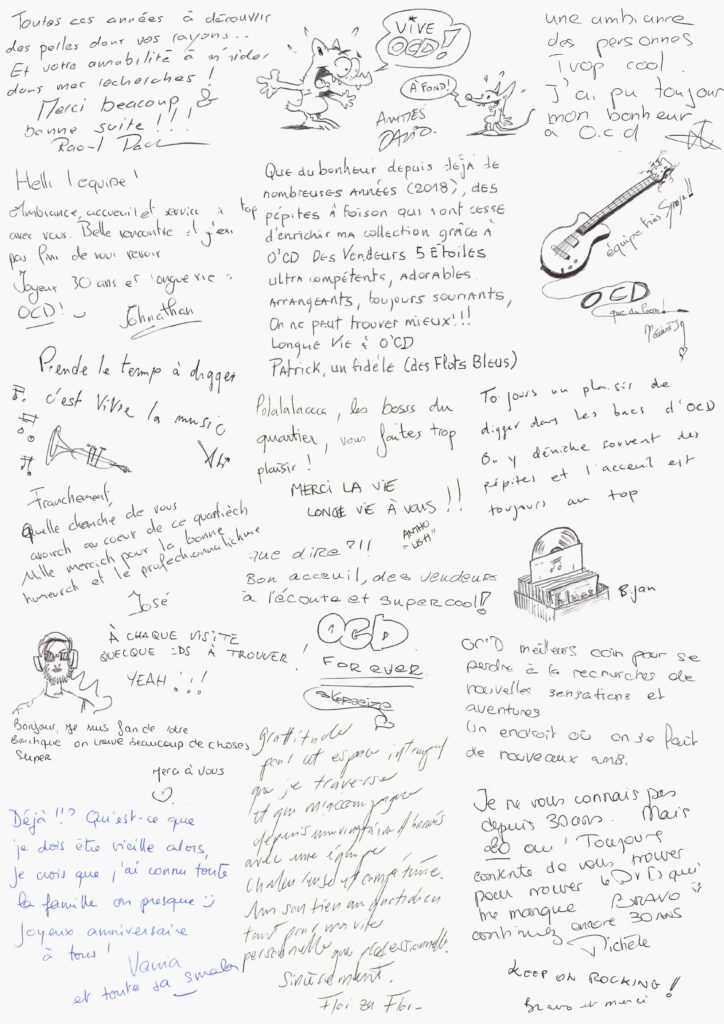 Toutes ces années à découvrir
des perles dans vos rayons...
Et votre amabilité à m'aider
dans mes recherches !
Merci beacoup &
bonne suite !!!
VIVE
OCD !
À FOND !
AMITIÉS
DAVID.
une ambiance
des personnes
Trop cool
J'ai pu toujour
mon bonheur
a O.c.d
Hello l'équipe !
Ambiance, accueil et service à top
avec vous. Belle rencontre et j'en
pas fini de vous revoir
Joyeux 30 ans et longue vie à
OCD !
Johnathan
Que du bonheur depuis déjà de
nombreuses années (2018), des
pépites à foison qui n'ont cessé
d'enrichir ma collection grâce à
O'CD Des Vendeurs 5 Étoiles
ultra compétents, adorables
Arrangeants, toujours souriants,
On ne peut trouver mieux !!!
Longue Vie à O'CD
Patrick, un fidèle (des Flots Bleus)
équipe très Sympa !!
OCD
que du bon !
Prende le temp à digger
c'est vivre la music
Polalalaaaa, les bosss du
quartier, vous faites trop
plaisir !
MERCI LA VIE
LONGE VIE À VOUS !!
ANTHO
"USH"
Toujours un plaisir de
digger dans les bacs d'OCD
On y déniche souvent des
pépites et l'acceuil est
toujours au top
Bijan
Franchement,
quelle chanche de vous
avoirch au coeur de ce quartièch
Mille mercich pour la bonne
humeurch et le profechionnalichme
José
Que dire ?!!
Bon acceuil, des vendeurs
à l'écoute et super cool !
OCD
FOREVER
À CHAQUE VISITE
QUELQUE CDS À TROUVER !
YEAH !!!
Bonjour, je suis fan de votre
Boutique on trouve Beaucoup de choses
Super
Merci à vous
OC'D meilleurs coin pour se
perdre à la recherches de
nouvelles sensations et
aventures
Un endroit où on se fait
de nouveaux amis.
Déjà !!? Qu'est-ce que
je dois être vieille alors,
Je crois que j'ai connu toute
la famille ou presque
Joyeux anniversaire
à tous !
Vania
et toute sa smala
Grattitude
pour cet espace intemporel
que je traverse
et qui m'accompagne
depuis une vingtaine d'années
avec une équipe
chaleureuse et compétente.
Un soutien au quotidien
tant pour ma vie
personnelle que professionnelle.
Sincèrement.
Je ne vous connais pas
depuis 30 ans. Mais
20 ou ! Toujours
contente de vous trouver
pour trouver le DVEs qui
me manque BRAVO
continuez encore 30 ANS.
Michèle
KEEP ON ROCKING !
Bravo et merci !